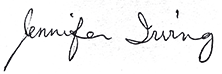 Jennifer Irving